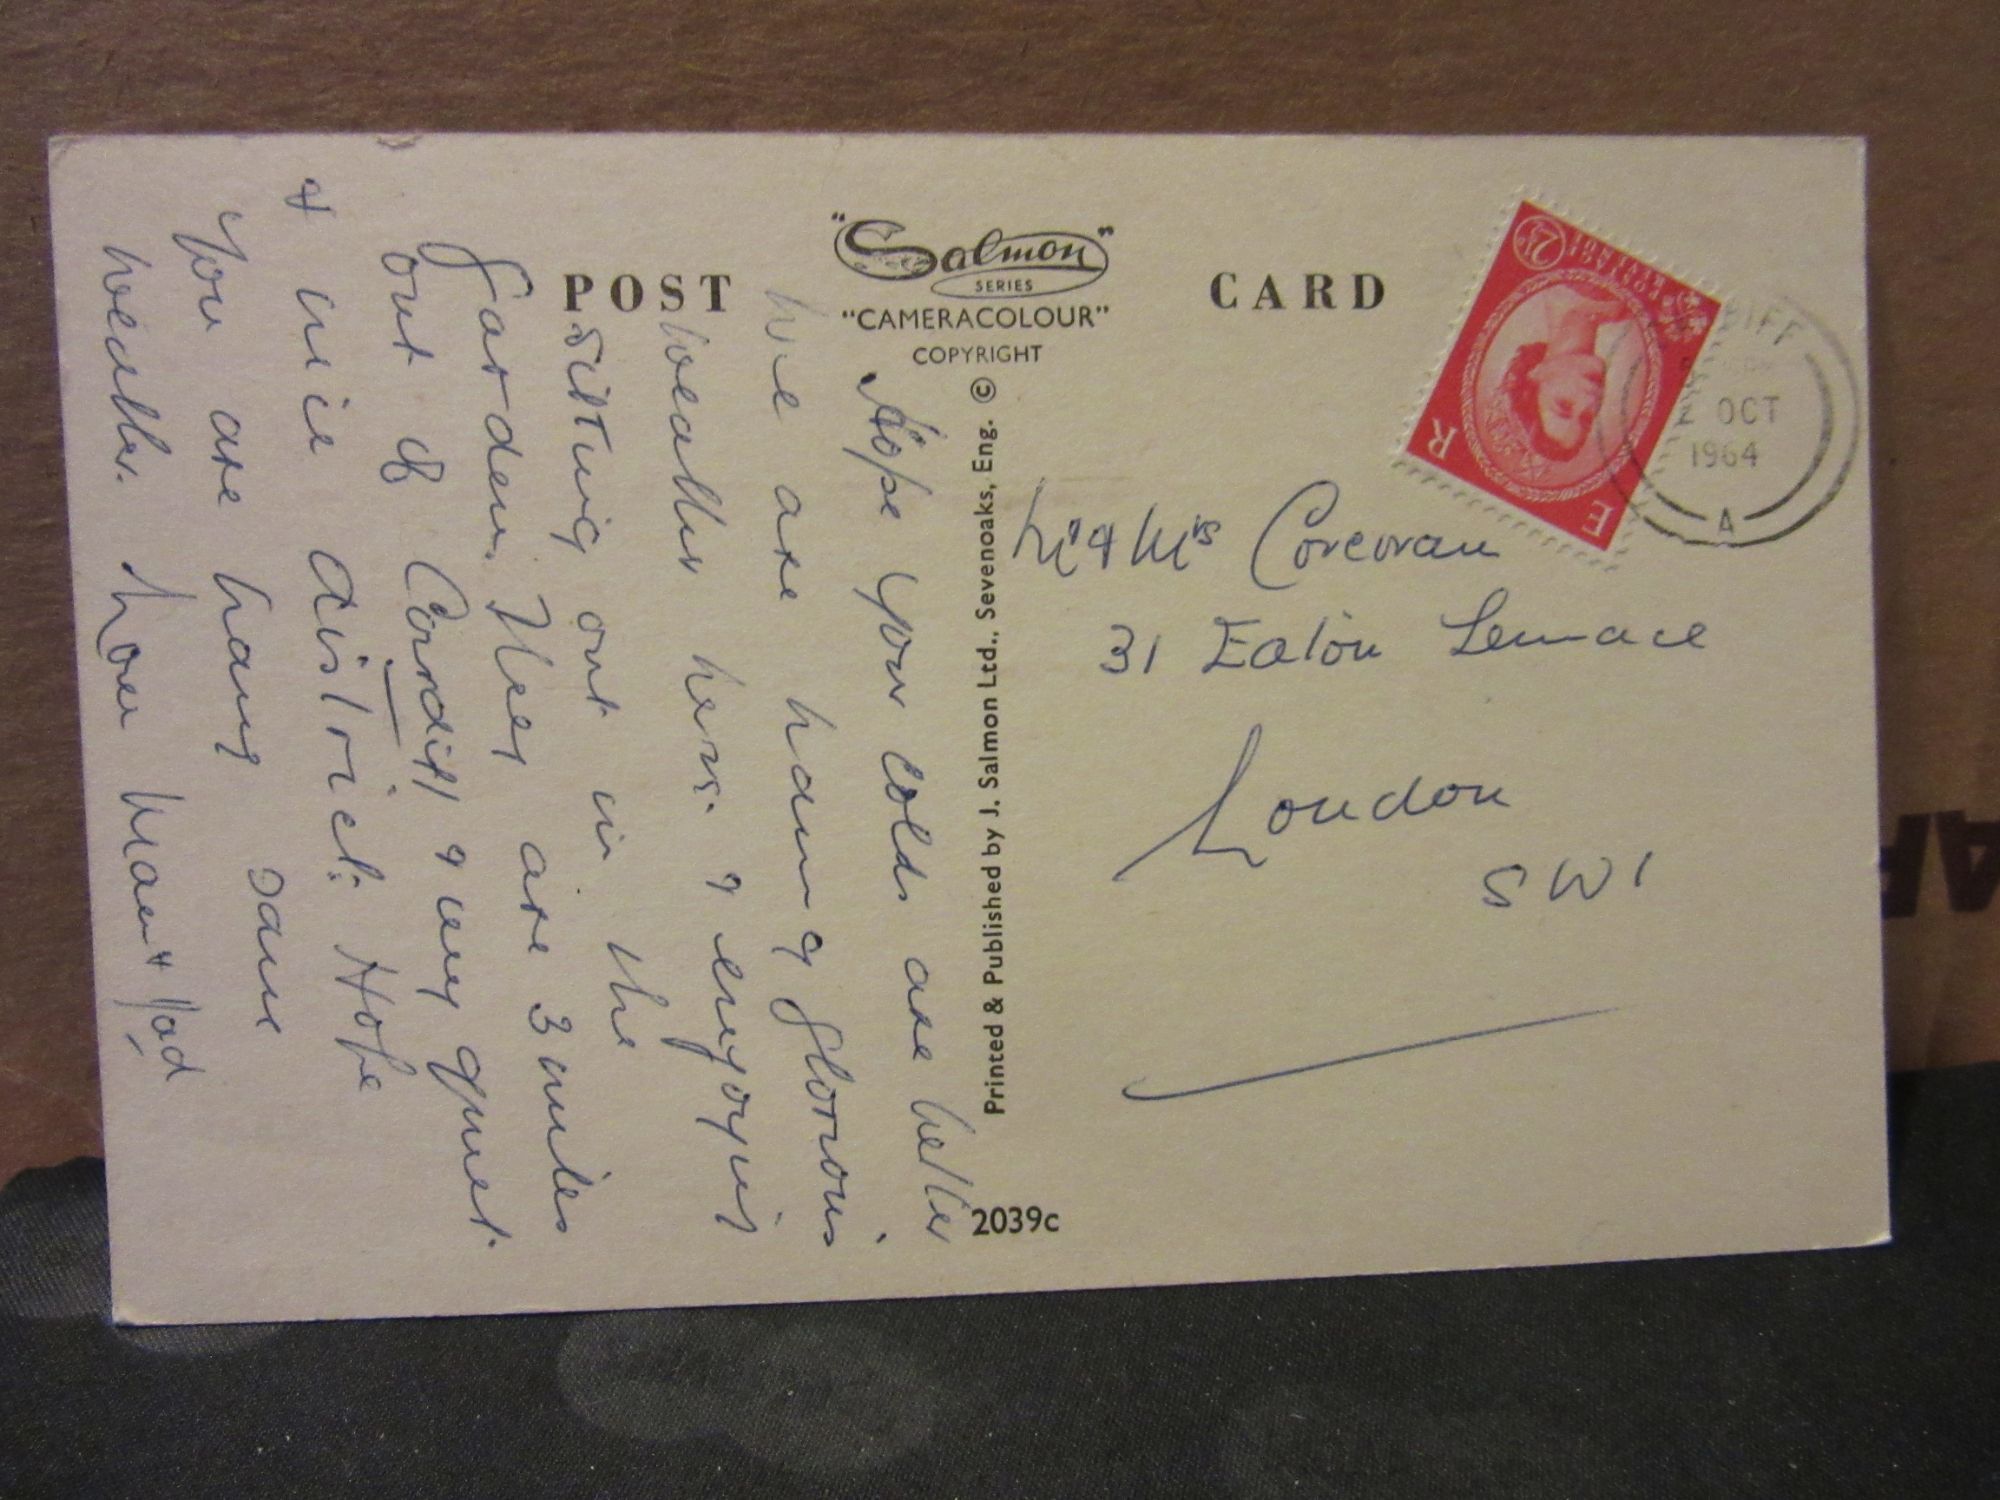 POST CARD
"Salmon"
SERIES
"CAMERACOLOUR"
COPYRIGHT
Printed & Published by J. Salmon Ltd., Sevenoaks, Eng. ©
2039c
Hope your colds are better
We are having glorious
weather here. & enjoying
sitting out in the
Garden. They are 3 miles
out of Cardiff & very quiet.
& nice district. Hope
you are having same
weather. Love Mam & Dad
Mr & Mrs Corcoran
31 Eaton Terrace
London
SW1
2½D
POSTAGE
E R
DIFF
OCT
1964
A